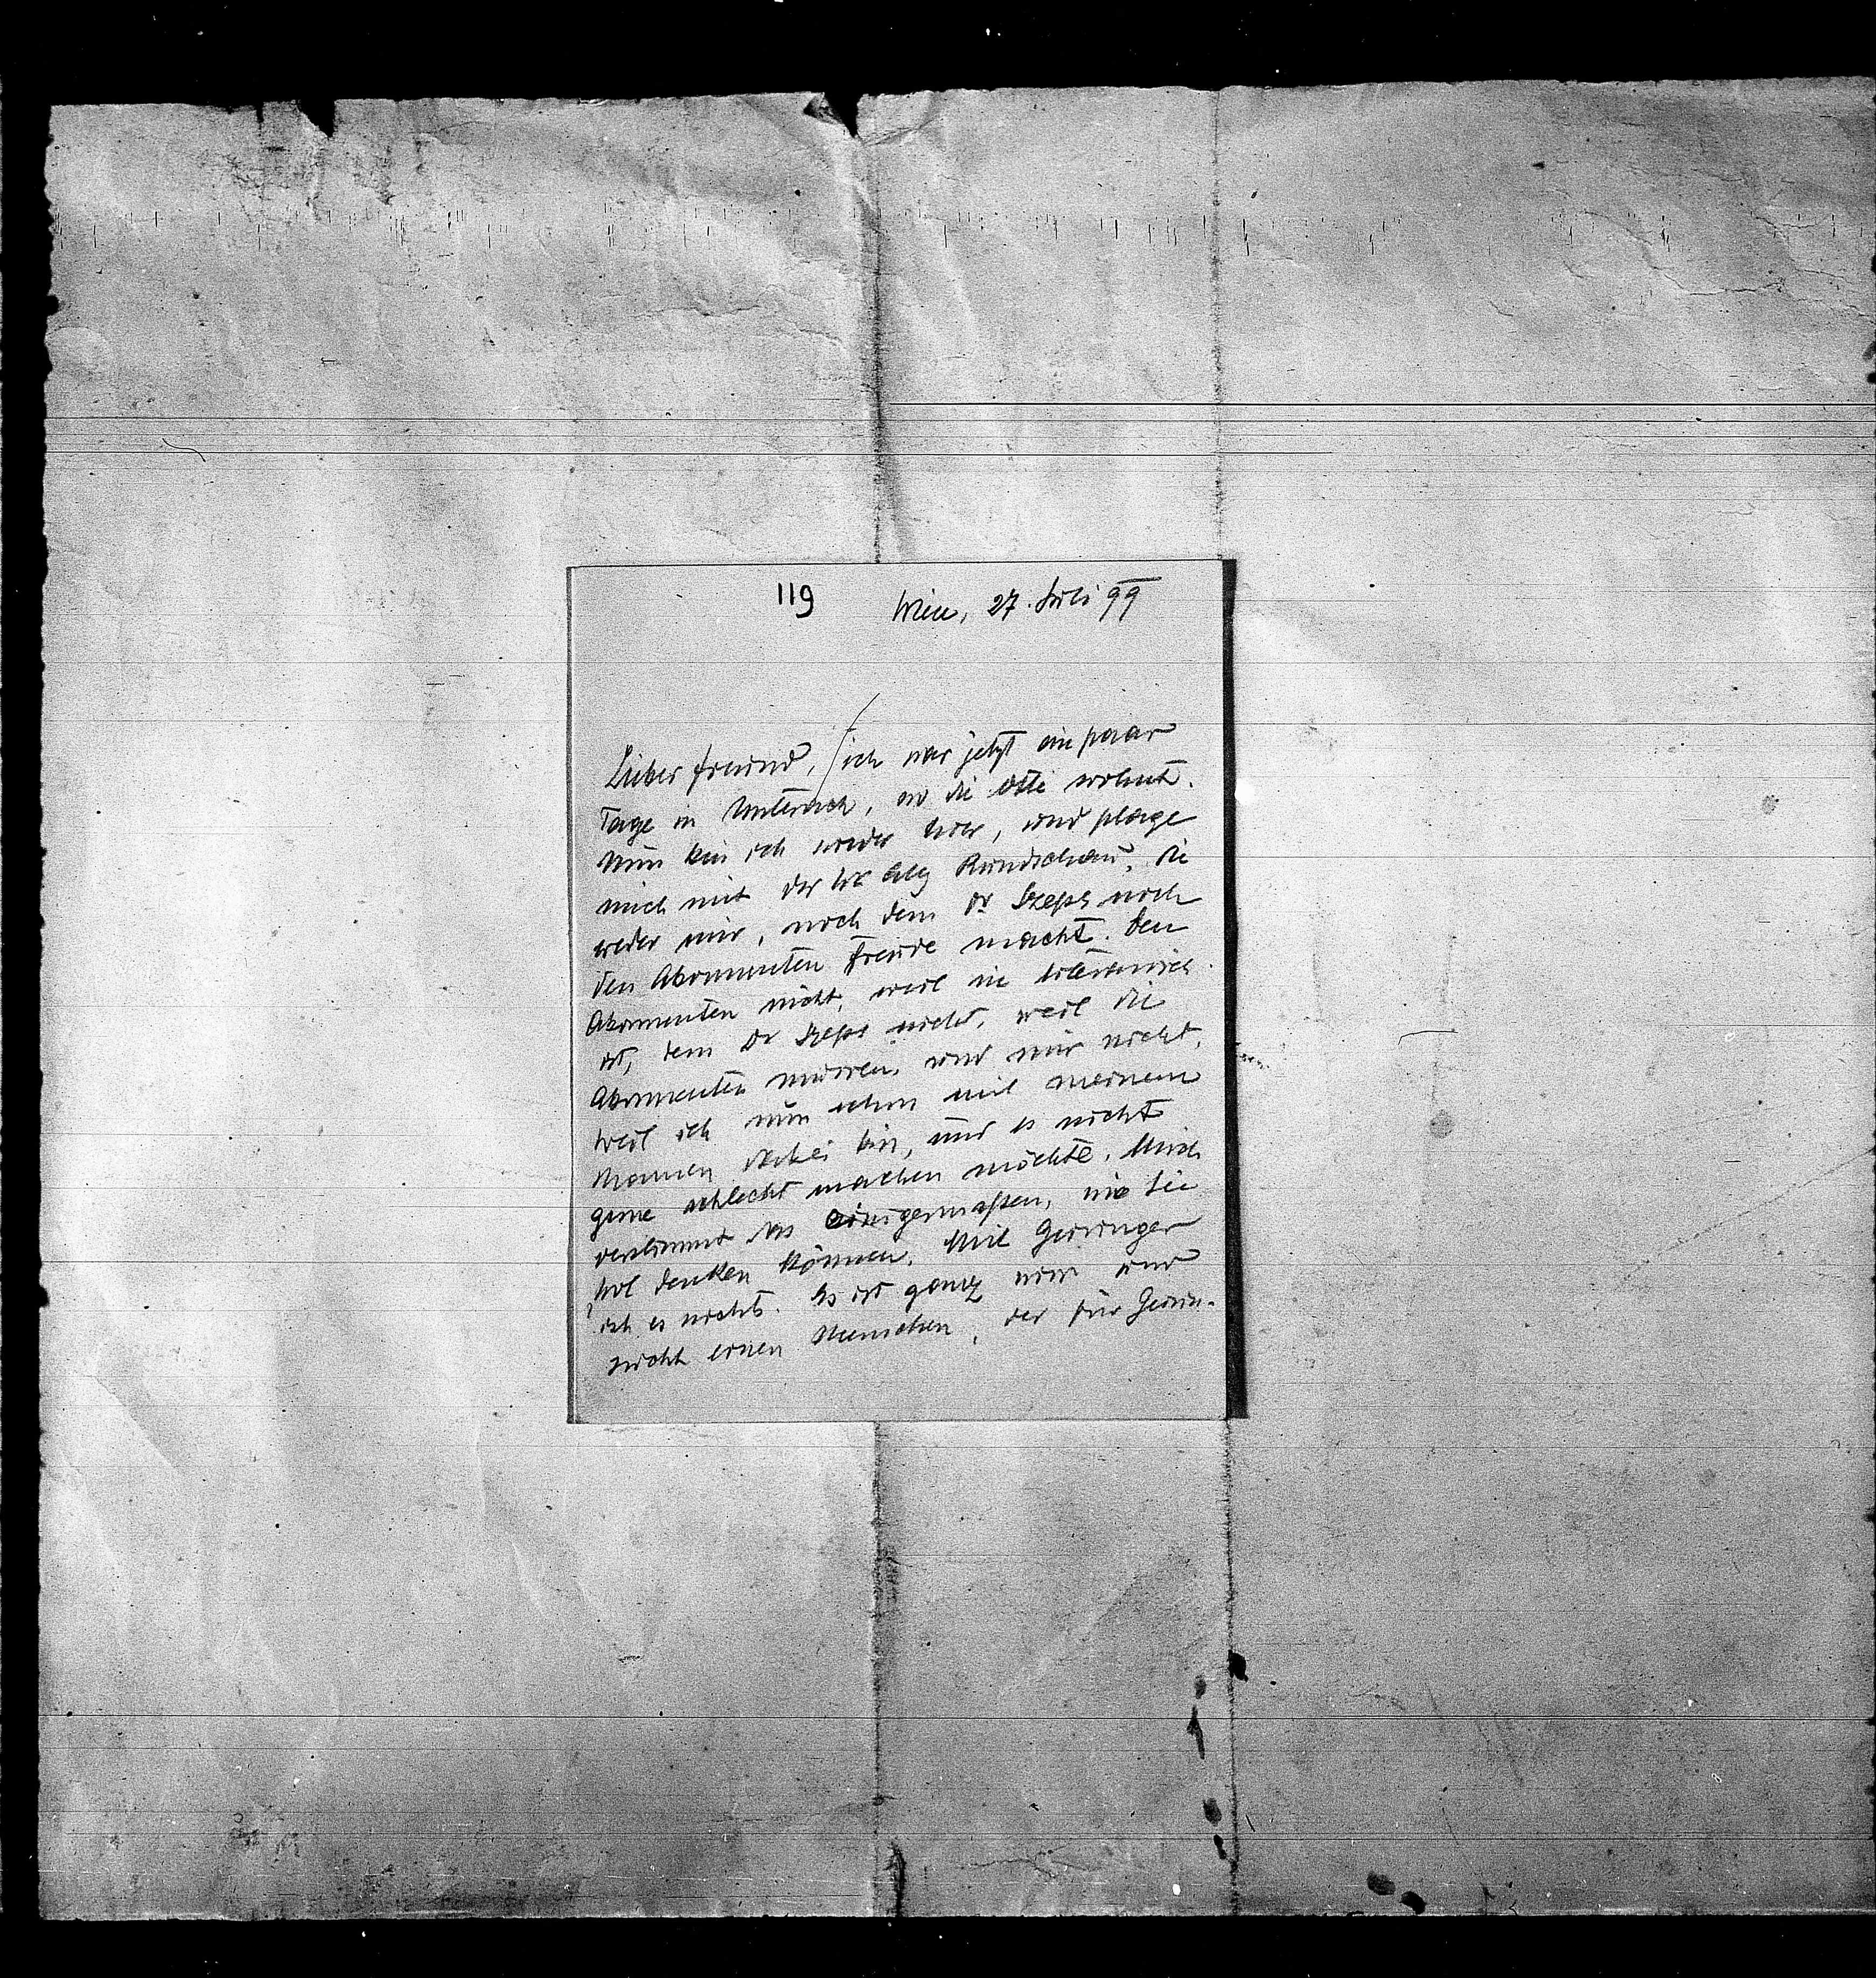 119 Wien, 27. Juli 99
Lieber Freund, ich war jetzt ein paar
Tage in Unterach, wo die Otti wohnt.
Nun bin ich wieder hier, und plage
mich mit der Wr Allg Rundschau, die
weder mir, noch dem Dr Szeps noch
den Abonnenten Freude macht. Den
Abonnenten nicht, weil sie literarisch
ist, dem Dr Szeps nicht, weil die
Abonnenten murren, und mir nicht,
weil ich nun schon mit meinem
Namen dabei bin, und es nicht
gerne schlecht machen möchte. Mich
verstimmt das einigermaßen, wie Sie
wol denken können. Mit Geiringer
ist es nichts. Es ist ganz und
nicht einen Menschen, der für Geirin-